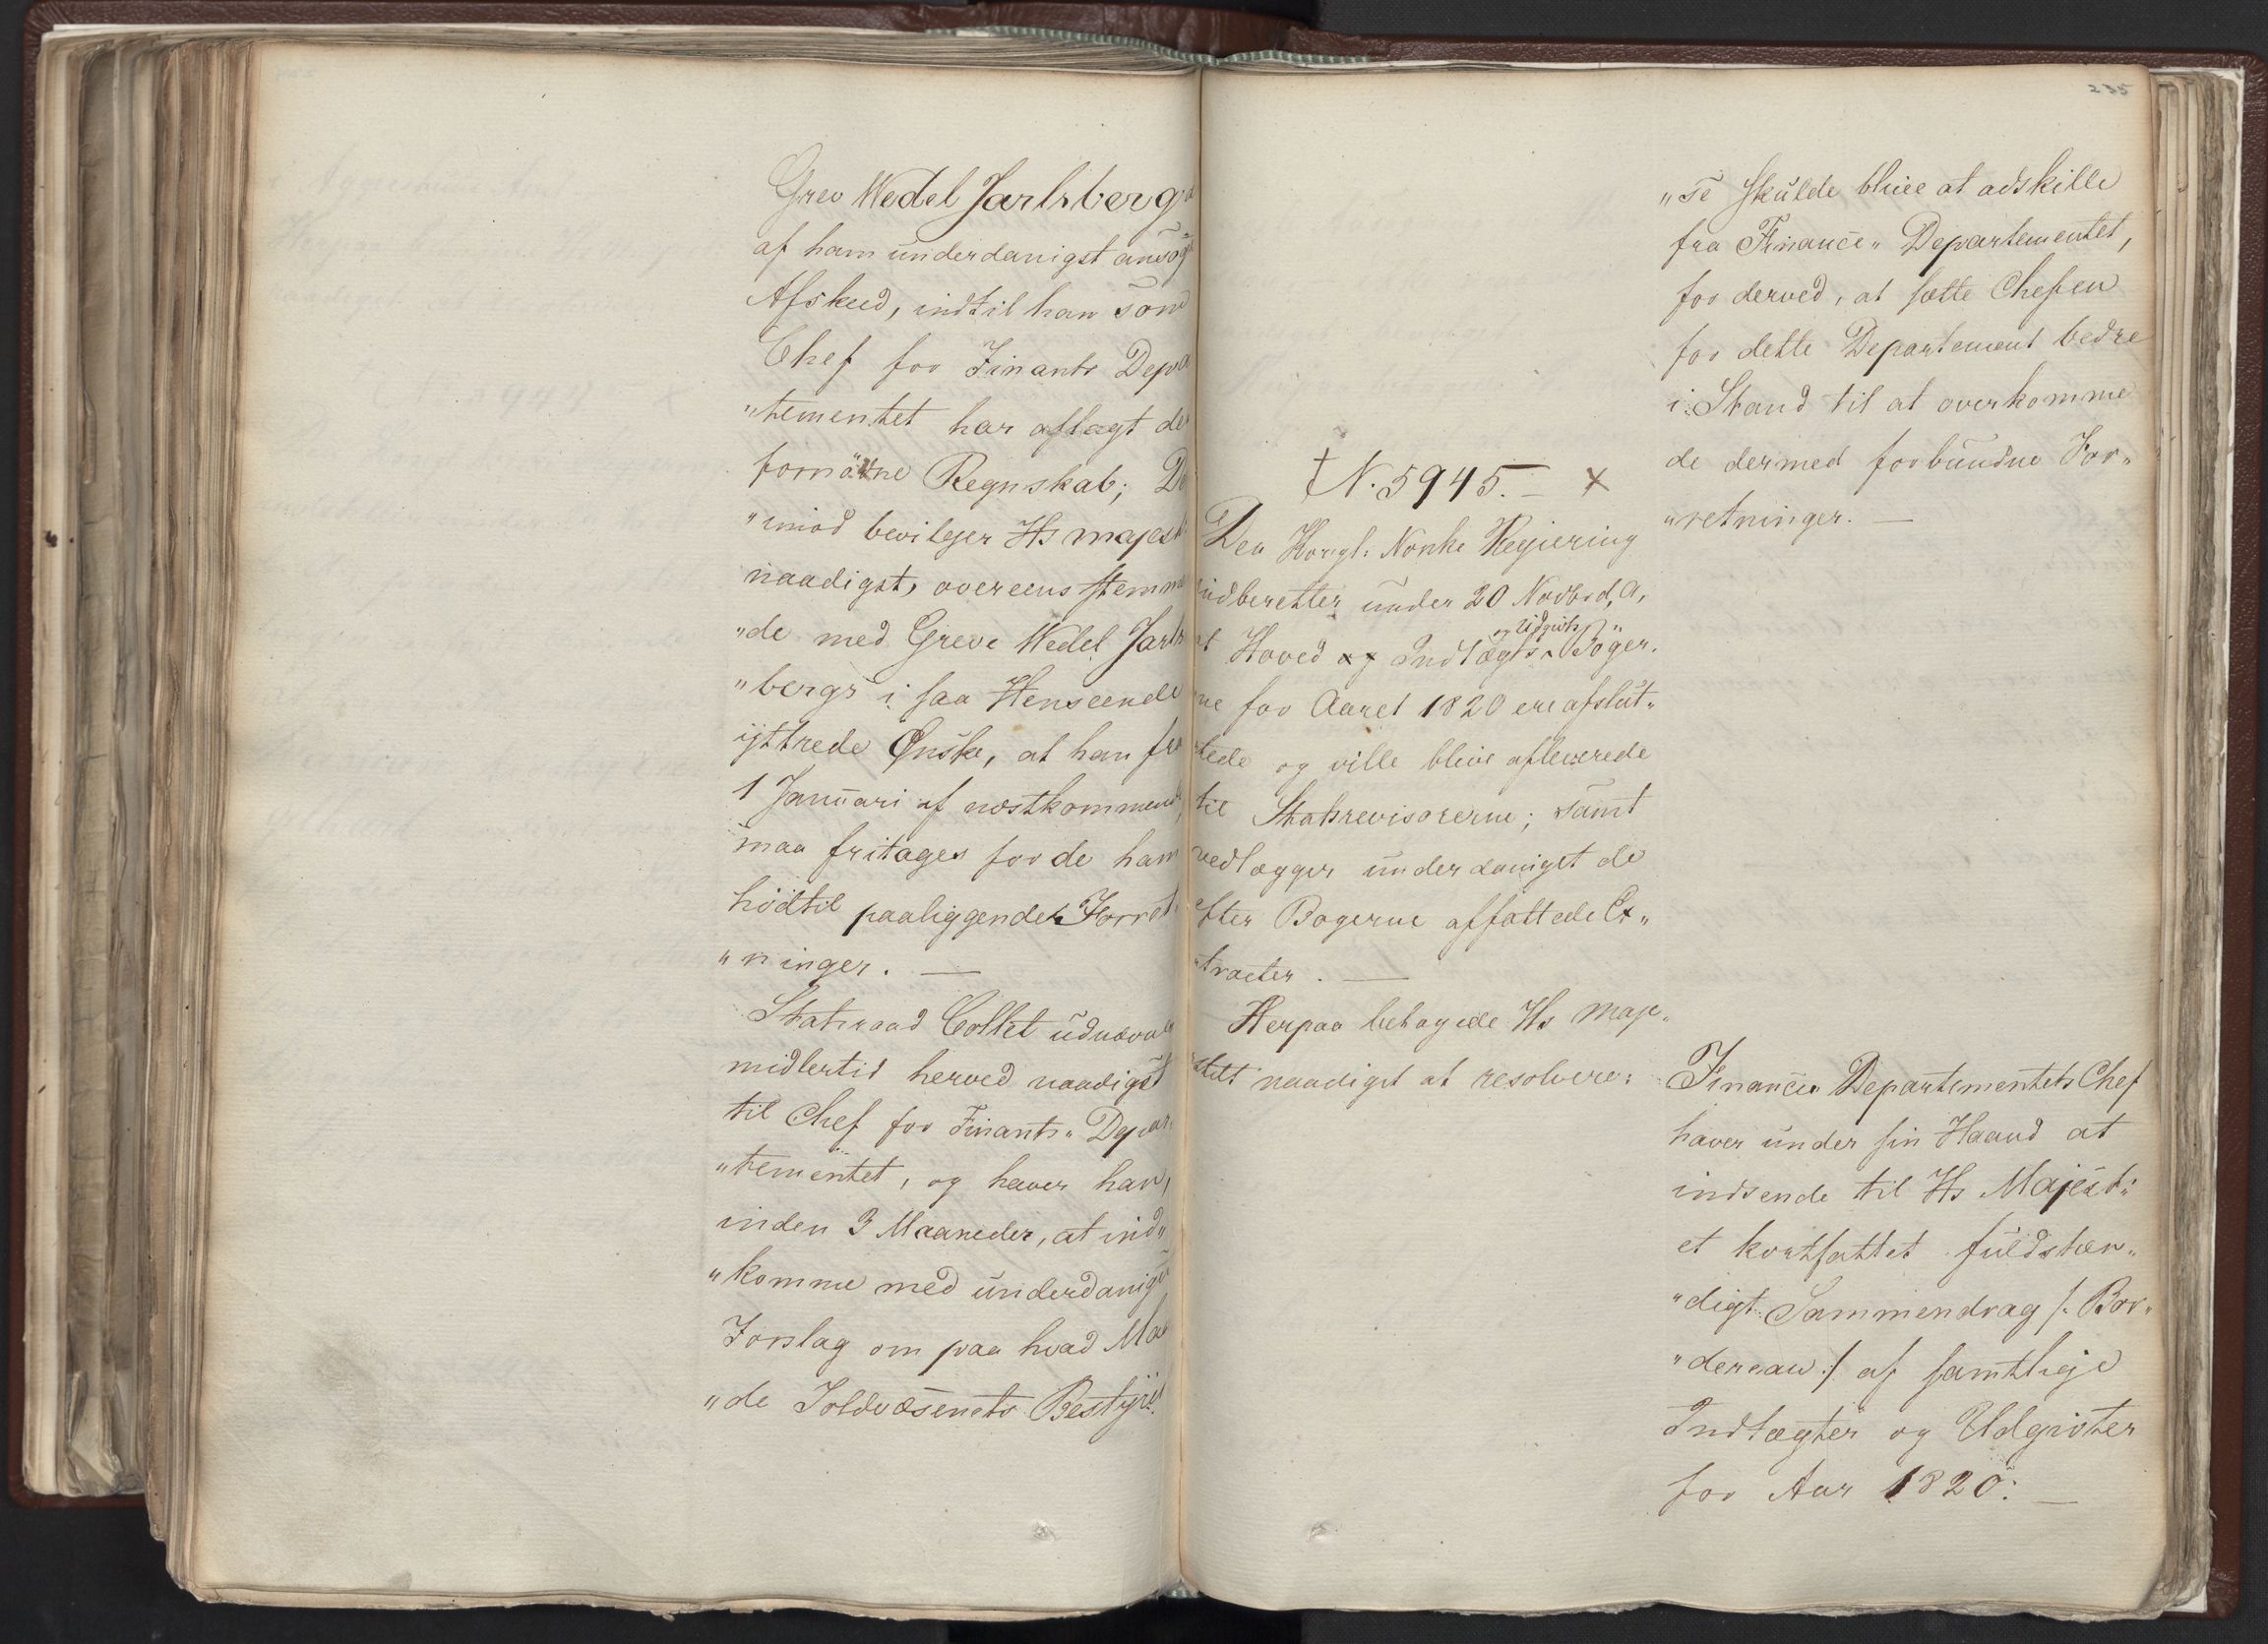 Grev Wedel Jarlsbergs
af ham underdanigst ansøgt
Afskeed, indtil han som
Chef for Finants Depa
"tementet har aflagt de
fornødne Regnskab; De
"imod bevilger Hs Majest:
naadigst, overeensstemme
"de med Greve Wedel Jarls
"bergs i saa Henseende
yttrede Ønske, at han fra
1 Januari af næstkommende,
maa fritages for de ham
hidtil paaliggende Forret
"ninger. —
Statsraad Collet udnævnes
midlertid herved naadigst
til Chef for Finants" Depar
"tementet, og haver han,
inden 3 Maaneder, at ind"
"komme med underdanigst
Forslag om paa hvad Maa
"de Toldvæsenets Bestyrel
235
N. 5945. — x
Den Kongl: Norske Regiering
indberetter under 20 Novbr d, A,
at Hoved og Indtægts og Udgivts" Bøger.
ne for Aaret 1820 ere afslut"
tede og ville blive afleverede
til Statsrevisorerne; samt
vedlægger underdanigst de
efter Bøgerne affattede Ex"
"tracter. —
Herpaa behagede Hs Maje"
stet naadigst at resolvere:
"se skulde blive at adskille
fra Finance" Departementet,
for derved, at sætte Chefen
for dette Departement bedre
i Stand til at overkomme
de dermed forbundne For"
"retninger. —
Finance" Departementets Chef
haver under sin Haand at
indsende til Hs Majest:
et kortfattet fuldstæn"
"digt Sammendrag /: Bor"
"dereau :/ af samtlige
Indtægter og Udgivter
for Aar 1820: —